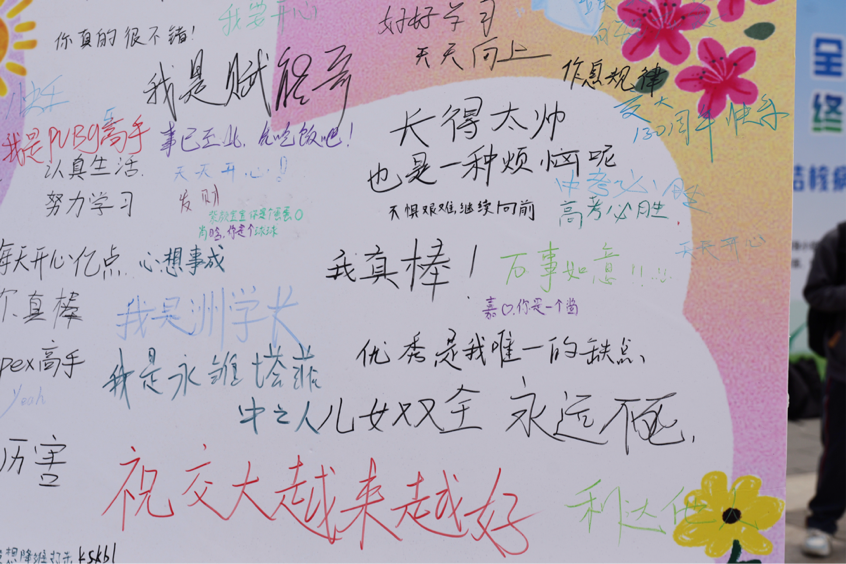 我要开心
好好学习
天天向上
你真的很不错!
我是赋能哥
作息规律
交大
130周年快乐
长得太帅
也是一种烦恼呢
我是PUBG高手
事已至此,先吃饭吧!
认真生活.
努力学习
天天开心!!
发财
中考必胜
高考必胜.
不惧艰难,继续向前
每天开心亿点
心想事成
天天开心
我真棒!
万事如意!!!
嘉口,你是一个酱
尔真棒
我是洲学长
pex高手
我是永雏塔菲
优秀是我唯一的缺点、
Yeah
中之人儿女双全
永远不死.
厉害
祝交大越来越好
利达他人
kskbl
全
终
结核病